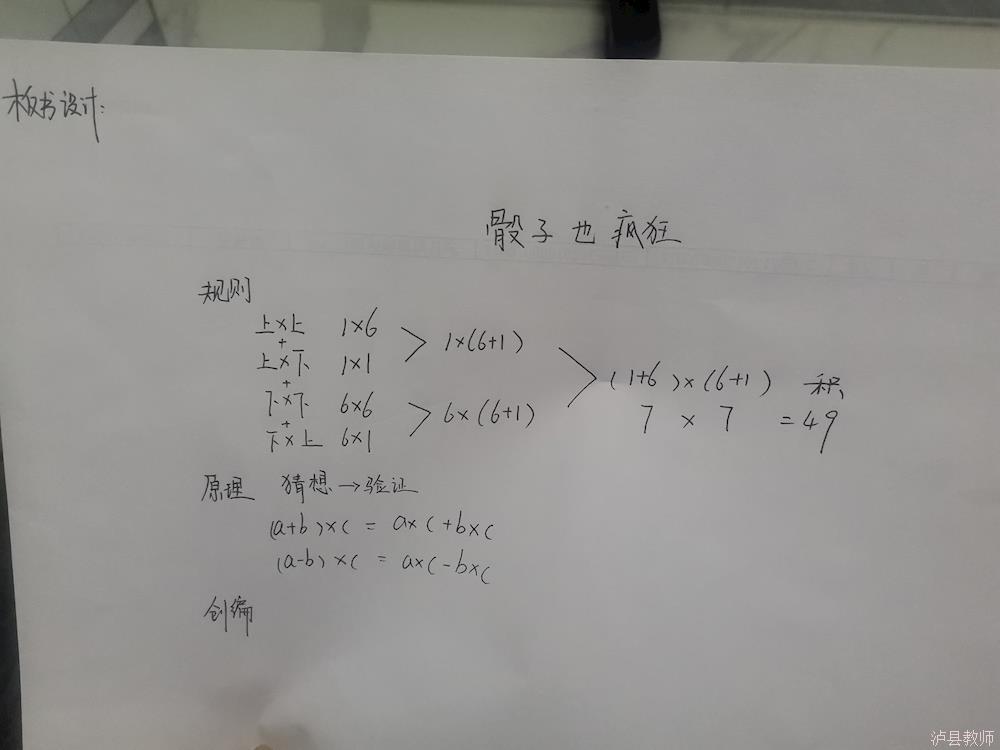 板书设计:
骰子也疯狂
规则
上×上 1×6
+
上×下 1×1
> 1×(6+1)
+
下×下 6×6
+
下×上 6×1
> 6×(6+1)
> (1+6)×(6+1) 积
7 × 7 =49
原理 猜想→验证
(a+b)×c = a×c+b×c
(a-b)×c = a×c-b×c
创编
泸县教师